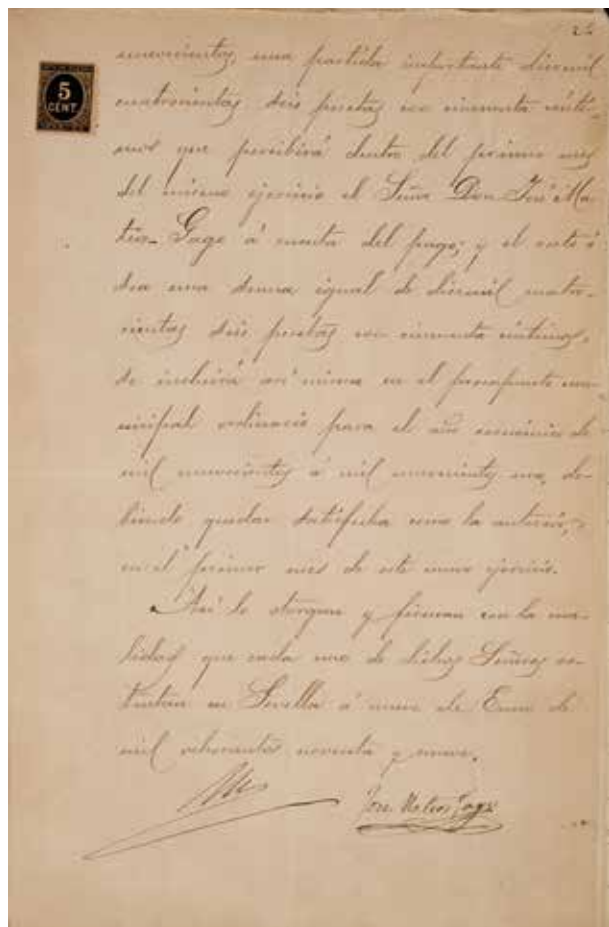 5
CENT.
novecientos, una partida importante diez mil
cuatrocientas seis pesetas con cincuenta cénti-
mos que percibirá dentro del primer mes
del mismo ejercicio el Señor Don José Ma-
tos Gago á cuenta del pago; y el resto ó
sea una suma igual de diez mil cuatro-
cientas seis pesetas con cincuenta céntimos,
se incluirá así mismo en el presupuesto mu-
nicipal ordinario para el año económico de
mil novecientos á mil novecientos uno, de-
biendo quedar satisfecha como la anterior,
en el primer mes de este nuevo ejercicio.
Así lo otorgan y firman con la cua-
lidad que cada uno de dichos Señores os-
tentan en Sevilla á nueve de Enero de
mil ochocientos noventa y nueve.
José Matos Gago